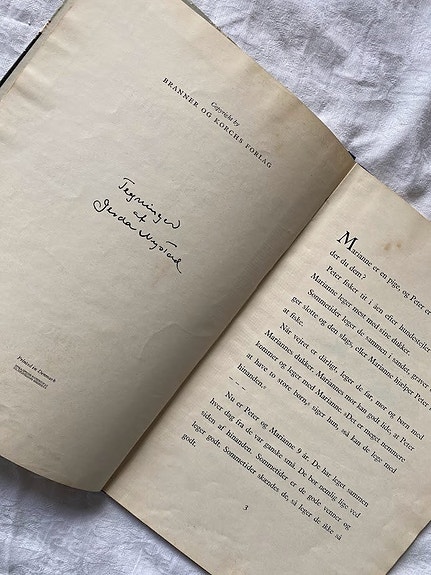 Copyright by
BRANNER OG KORCHS FORLAG
Tegninger
af
Gerda Nystad
Printed in Denmark
Marianne er en pige, og Peter er
der du dem?
Peter fisker tit i åen efter hundestejler
Marianne leger mest med sine dukker.
Sommetider leger de sammen i sandet, graver
ger slotte og den slags, eller Marianne hjælper Peter
at fiske.
Når vejret er dårligt, leger de far, mor og børn med
Mariannes dukker. Mariannes mor kan godt lide, at Peter
kommer og leger med Marianne. »Det er meget nemmere
at have to store børn,« siger hun, »så kan de lege med
hinanden.«
– – –
Nu er Peter og Marianne 9 år. De har leget sammen
hver dag fra de var ganske små. De bor nemlig lige ved
siden af hinanden. Sommetider er de gode venner og
leger godt. Sommetider skændes de, så leger de ikke så
godt.
3